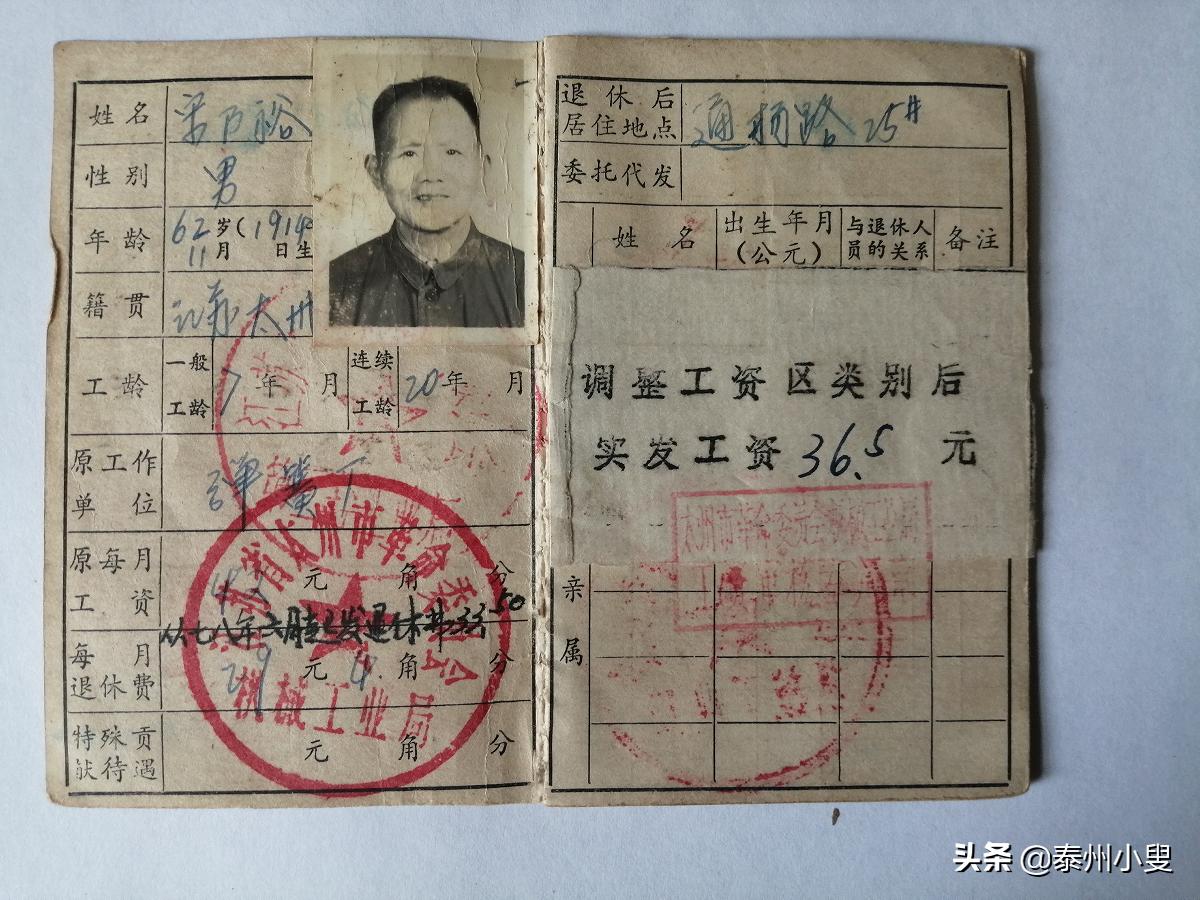 姓名
性别 男
年龄 62岁(1914年
11月 日生
籍贯 江苏太州
工龄 一般工龄 7年 月 连续工龄 20年 月
原工作单位 弹簧厂
原每月工资 元 角 分
每月退休费 29元 4角 分
特殊贡献待遇 元 角 分
江苏省太州市革命委员会
机械工业局
退休后居住地点 通扬路25#
委托代发
姓名 出生年月(公元) 与退休人员的关系 备注
调整工资区类别后
实发工资36.5元
亲属
头条 @泰州小叟